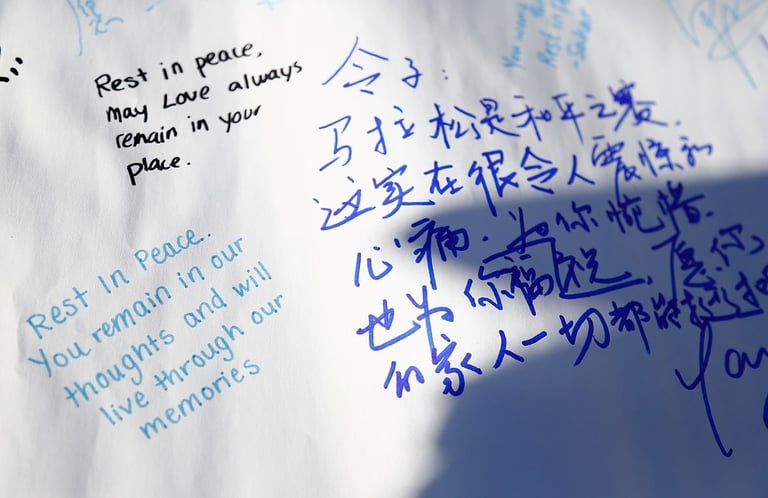 Rest in peace,
may Love always
remain in your
place.
Rest In Peace.
You remain in our
thoughts and will
live through our
memories
令子:
马拉松是和平之赛.
这实在很令人震惊和
心痛. 为你惋惜.
也为你福祝, 愿你
的家人一切都能
You
Rest in